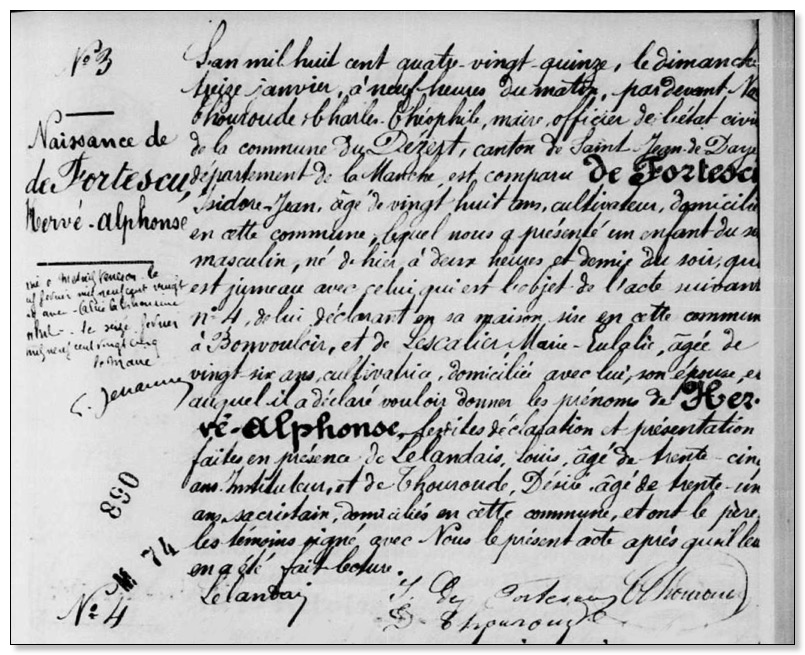 N° 3
Naissance de
de Fortescu,
Hervé-Alphonse
L'an mil huit cent quatre-vingt-quinze, le dimanche
treize janvier, à neuf heures du matin, par devant No
Thouroude Charles-Théophile, maire, officier de l'état civi
de la commune du Dézert, canton de Saint-Jean-de-Daye
département de la Manche, est comparu de Fortesc
Isidore-Jean, âgé de vingt huit ans, cultivateur, domicilié
en cette commune, lequel nous a présenté un enfant du se
masculin, né de hier, à deux heures et demie du soir, qui
est jumeau avec celui qui est l'objet de l'acte suivant
n° 4, de lui déclarant en sa maison, sise en cette commun
à Bonvouloir, et de Lescalier Marie-Eulalie, âgée de
vingt-six ans, cultivatrice, domiciliée avec lui, son épouse, et
auquel il a déclaré vouloir donner les prénoms de Her-
vé-Alphonse. Lesdites déclaration et présentation
faites en présence de Lelandais, Louis, âgé de trente-cinq
ans, instituteur, et de Thouroude, Désiré, âgé de trente-un
ans, sacristain, domiciliés en cette commune, et ont le père,
les témoins signé, avec Nous le présent acte après qu'il leu
en a été fait lecture.
Lelandais
le seize février
mil neuf cent vingt cinq
le Maire
890
M 74
N° 4